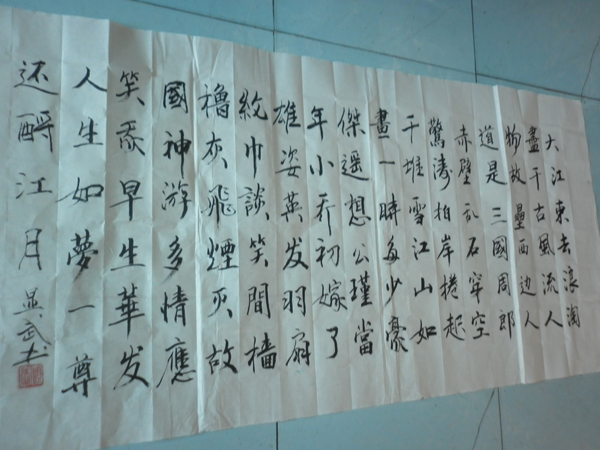 大江東去浪淘
盡千古風流人
物故壘西边人
道是三國周郎
赤壁乱石穿空
驚濤拍岸捲起
千堆雪江山如
畫一時多少豪
傑遥想公瑾當
年小乔初嫁了
雄姿英发羽扇
纶巾談笑間檣
櫓灰飛煙灭故
國神游多情應
笑吾早生華发
人生如夢一尊
还酹江月